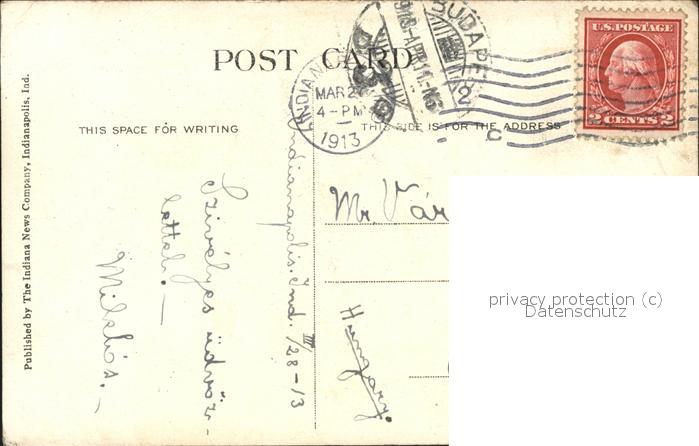 POST CARD
THIS SPACE FOR WRITING
THIS SIDE IS FOR THE ADDRESS
Published by The Indiana News Company, Indianapolis, Ind.
INDIANA
MAR 2
4-PM
1913
BUDAPE
U.S. POSTAGE
2 CENTS 2
Indianapolis. Ind. III/28-13
Szivélyes üdvöz-
lettel.—
Miklós.—
Mr. Vár
Hungary
privacy protection (c)
Datenschutz